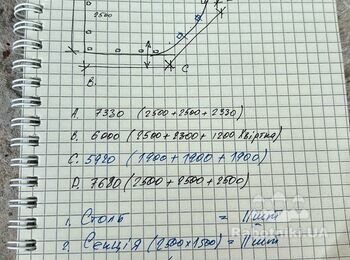 2500
C
B.
A. 7330 (2500+2500+2330)
B. 6000 (2500+2300+1200 хвіртка)
C. 5920 (1900+1900+1900)
D. 7680 (2500+2500+2500)
1. Столь = 11 шт
2. Секція (2500х1500) = 11 шт
Rabotniki.UA